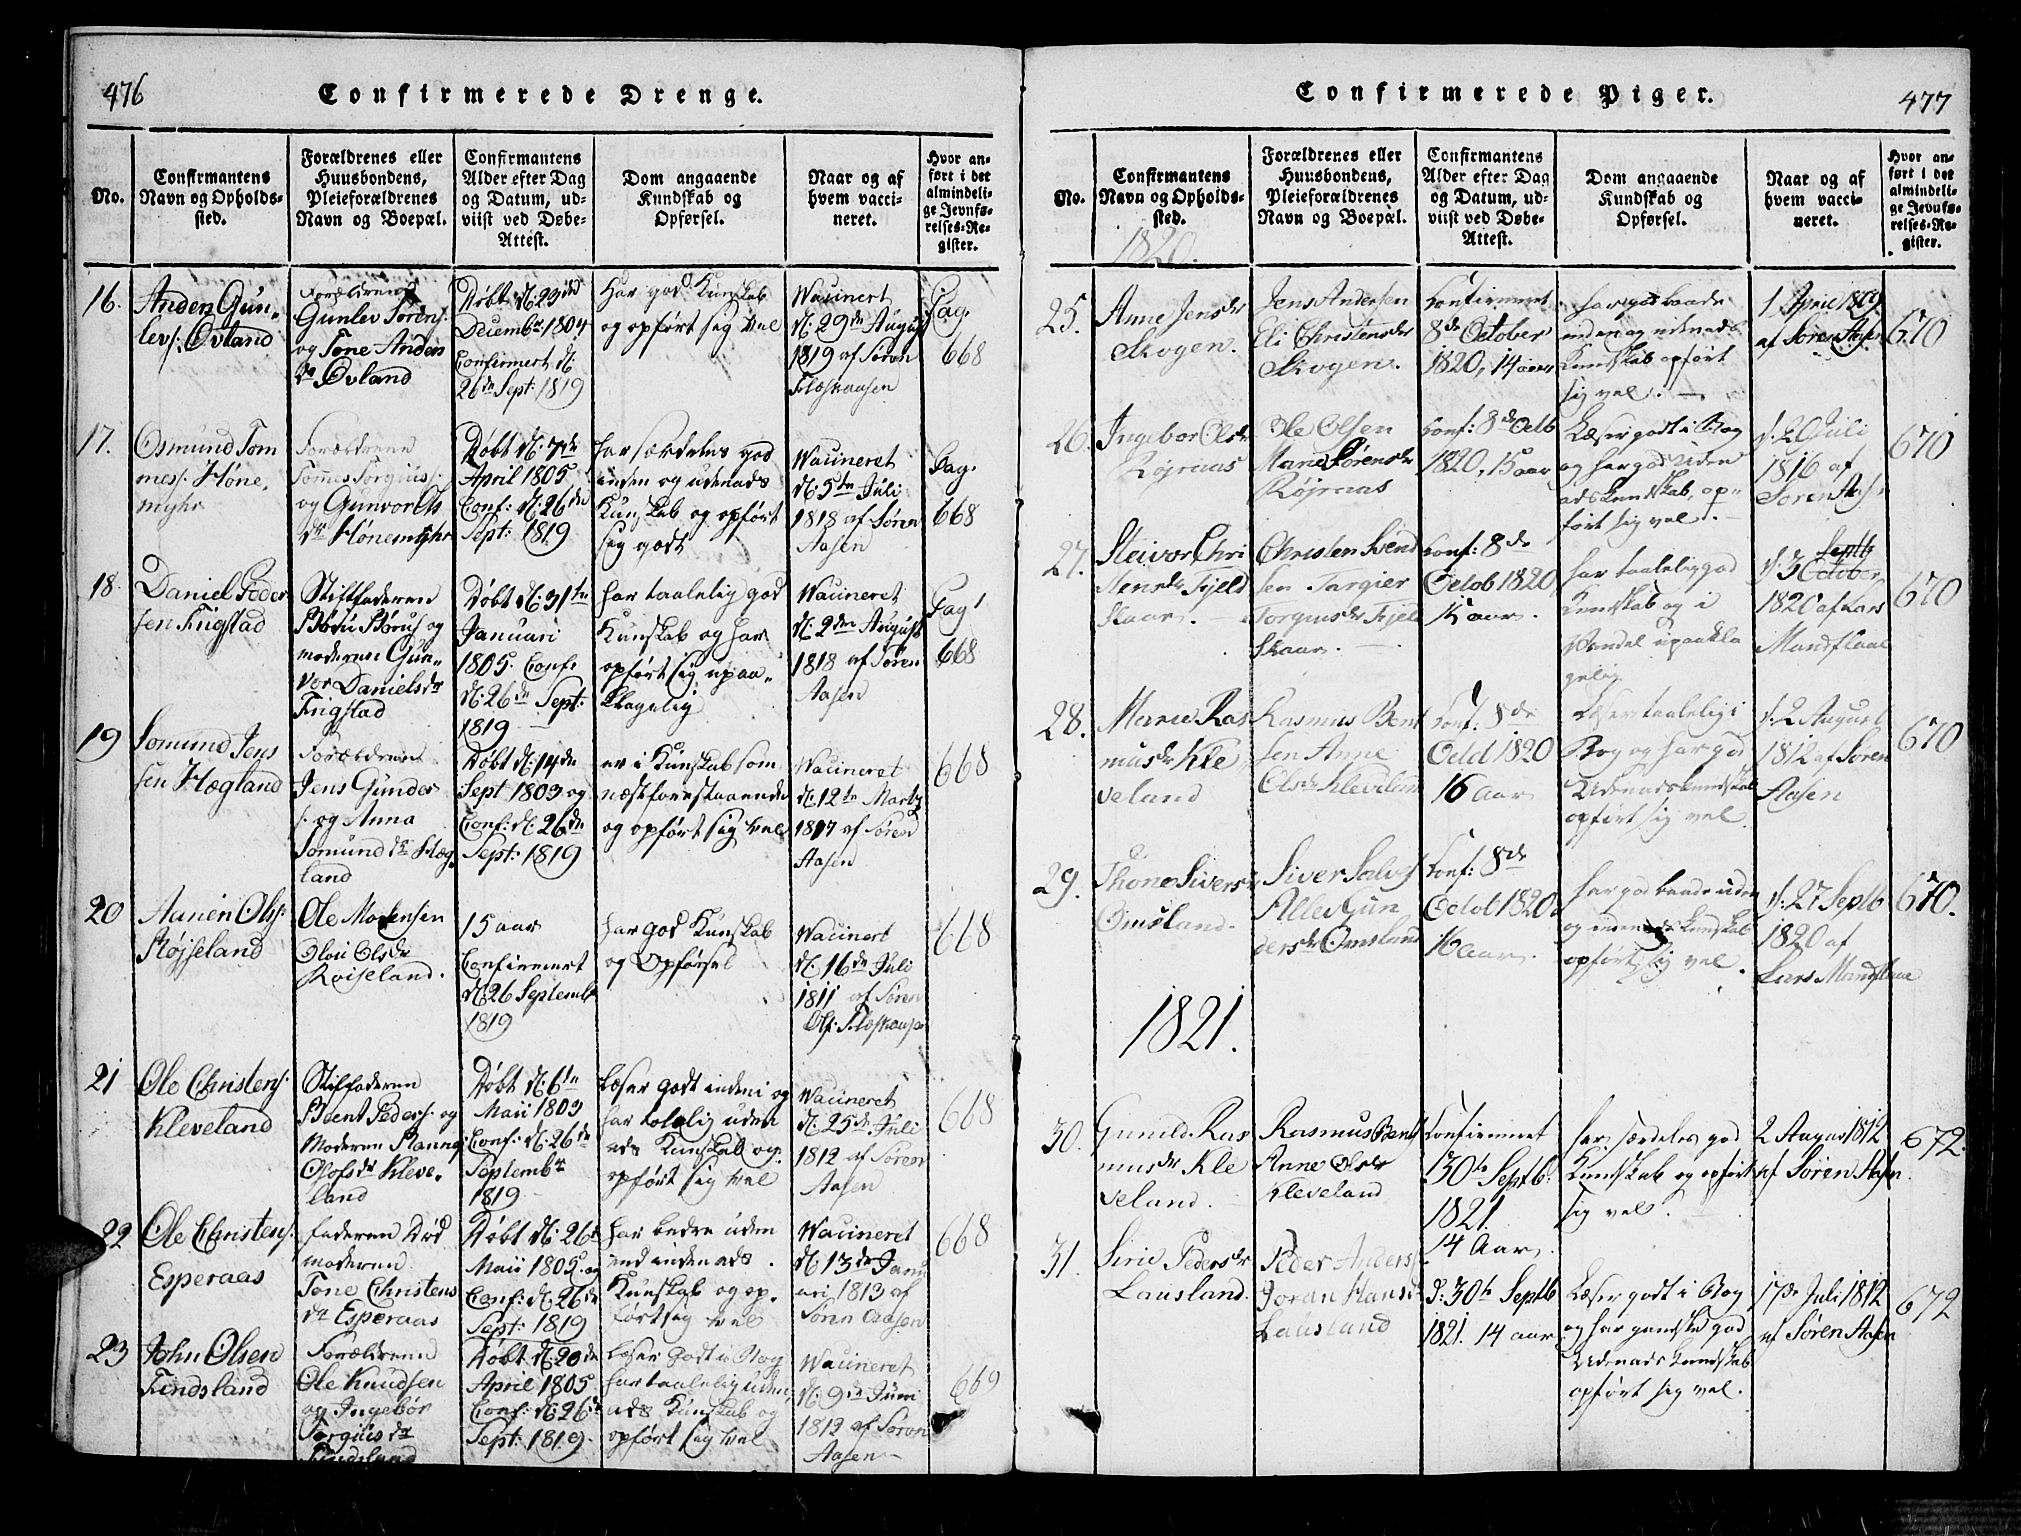 476
Confirmerede Drenge.
No.
Confirmantens
Navn og Opholds-
sted.
Forældrenes eller
Huusbondens,
Pleieforældrenes
Navn og Boepæl.
Confirmantens
Alder efter Dag
og Datum, ud-
viist ved Døbe-
Attest.
Dom angaaende
Kundskab og
Opførsel.
Naar og af
hvem vacci-
neret.
Hvor an-
ført i det
almindeli-
ge Jevnfø-
relses-Re-
gister.
16.
Anders Gun-
levs: Øvland
Forældrene
Gunlev Torens:
og Tone Anders
dr Øvland
Døbt d: 23de
Decembr 1804
Confirmert d:
26de Sept: 1819
Har god Kunskab
og opført sig vel
Waccineret
d: 29de August
1819 af Søren
Pag.
668
17.
Osmund Tom
mes: Høne,
myhr
Forældrene
Tommes Torgiis:
og Gunvor Ols
dr Hønemyhr
Døbt d: 7de
April 1805
Conf: d: 26de
Sept: 1819
har særdeles god
inden og udenads
Kunskab og opført
sig godt
Waccineret
d: 5te Juli
1818 af Søren
Aasen
Pag.
668
18.
Daniel Peder
sen Trigstad
Stiffaderen
Børu Børus: og
moderen Gun-
vor Daniels dr
Trigstad
Døbt d: 31te
Januari
1805. Conf:
d: 26de Sept:
1819
har taalelig god
Kunskab og har
opført sig upaa-
klagelig
Waccineret
d: 2den August
1818 af Søren
Aasen
Pag
668
19
Somund Jens
sen Hægland
Forældrene
Jens Gunder
s: og Anna
Somund dr Hæg-
land
Døbt d: 14de
Sept 1803 og
Conf: d: 26de
Sept: 1819
er i Kunskab som
næstforestaaende
og opført sig vel
Waccineret
d: 12te Marts
1817 af Søren
Aasen
668
20
Aanen Ols:
Røjseland
Ole Mortensen
Olsdr
Roiseland.
15 aar
Confirmert
d: 26 Septembr
1819
har god Kunskab
og Opførsel
Waccineret
d: 16de Juli
1811 af Søren
668
21
Ole Christens:
Kleveland
Stiffaderen
Bent Peders: og
Moderen
Olofs dr Kleve-
land
Døbt d: 6te
Maii 1803
Conf: d: 26de
Septembr
1819
Læser godt indeni og
har tolelig uden
ads Kunskab og
opført sig vel
Waccineret
d: 25de Juli
1812 af Søren
Aasen
668
22
Ole Christens:
Esperaas
faderen død
moderen
Tone Christens
dr Esperaas
Døbt d: 26de
Maii 1805 og
Conf: d: 26de
Sept: 1819
har bedre uden
end indenads
Kunskab og op-
ført sig vel
Waccineret
d: 13de Janu
ari 1813 af
Søren Aasen
668
23
John Olsen
Findsland
Forældrene
Ole Knudsen
og Ingebør
Torgiis dr
Findsland
Døbt d: 20de
April 1805
Conf: d: 26de
Sept: 1819.
læser godt i Bog
har taalelig uden
ads Kunskab og
opført sig vel
Waccineret
d: 9de Juni
1812 af Søren
Aasen
669
Confirmerede Piger.
477
No.
Confirmantens
Navn og Opholds-
sted.
Forældrenes eller
Huusbondens,
Pleieforældrenes
Navn og Boepæl.
Confirmantens
Alder efter Dag
og Datum, ud-
viist ved Døbe-
Attest.
Dom angaaende
Kundskab og
Opførsel.
Naar og af
hvem vacci-
neret.
Hvor an-
ført i det
almindeli-
ge Jevnfø-
relses-Re-
gister.
1820.
25.
Anne Jensdr
Skogen.
Jens Andersen
Eli Christensdr
Skogen.
Confirmeret
8de October
1820, 14 aar
har god baade
inden og udenads
Kundskab opført
sig vel.
af Søren Aasen
670
26.
Ingebor Olsdr
Røjraas
Ole Olsen
Marie Sørensdr
Røjraas
Conf: 8de Octb
1820, 15 aar
Læser godt i Bog
og har god Uden
ads Kundskab, op-
ført sig vel.
d: 20 Juli
1816 af
Søren Aasen
670
27.
Steivor Chri
stensdr Fjeld
skaar.
Christen Svend
sen Targier
Torgiusdr Fjeld
skaar.
Conf: 8de
Octob 1820
15 aar.
har taalelig god
Kundskab og i
Vandel upaakla
gelig
Septb
d: 3 October
1820 af Lars
Mandflaae
670
28.
Marie Ras
musdr Kle
veland
Rasmus Bent
sen Anne
Olsdr Kleveland
Conf: 8de
Octb 1820
16 Aar
Læser taalelig i
Bog og har god
Udenads kundskab
opført sig vel.
d: 2 August
1812 af Søren
Aasen
670
29.
Thone Siversdr
Omsland.
Siver Salvs
Alles Gun
dersdr Omsland
Conf: 8de
Octob 1820.
16 Aar.
har god baade uden
og indenads kundskab
opført sig vel.
d: 27 Septb
1820 af
Lars Mandflaae
670.
1821.
30.
Gunild Ras
musdr Kle
veland.
Rasmus Bents
Anne Olsdr
Kleveland
Confirmeret
30te Septb.
1821.
14 Aar.
har særdeles god
Kundskab og opført
sig vel.
2 August 1812
af Søren Aasen.
672.
31.
Sirie Pedersdr
Lausland.
Peder Anders
Joran Hansdr
Lausland
d: 30te Septb
1821. 14 aar
Læser godt i Bog
og har ganske god
Udenads kundskab
opført sig vel.
17de Juli 1812
af Søren Aasen
672